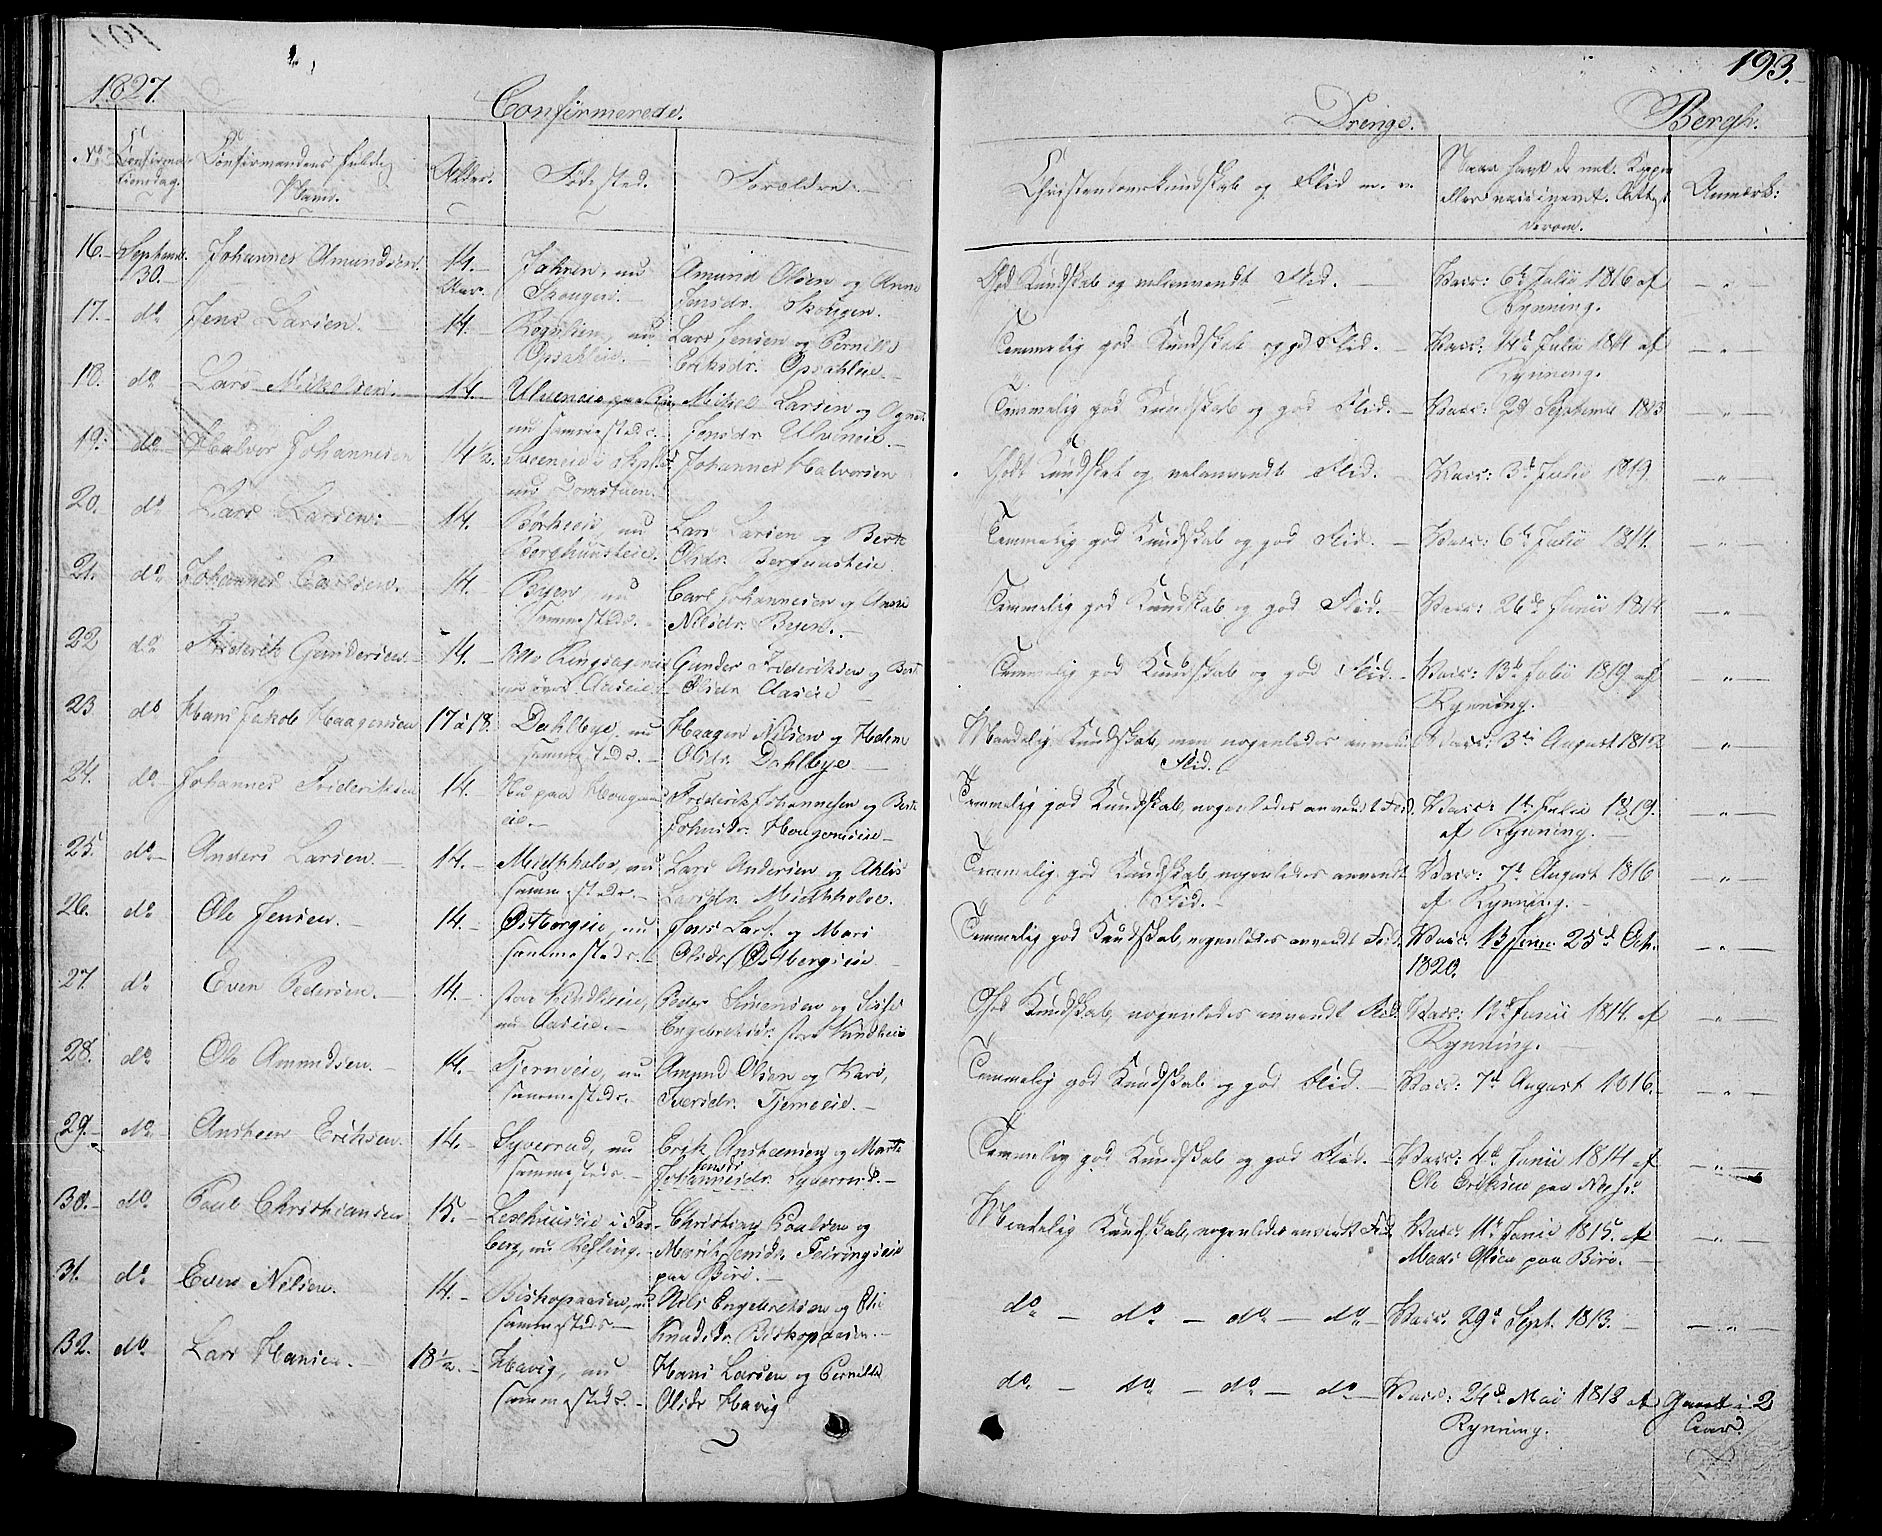 193.
1827.
Confirmerede.
Drenge.
Bergh.
No
Confirmandens fulde Navn.
Alder.
Fødested.
Forældre.
Christendomskundskab og Flid m. v.
Anmærk:
16. Septembr. 30. Johannes Amundsen. 14. Aar. Fahren, nu Skougen. Amund Olsen og Anne Jensdr. Skougen. God Kundskab og velanvendt Flid. Vacc: 6te Julii 1816 af Rynning.
17. do Jens Larsen. 14. nu Opsahleie. Lars Jensen og Pernille Eriksdr. Opsahleie. Temmelig god Kundskab og god Flid. Vacc: 14de Julii 1814 af Rynning.
18. do Lars Mikelsen. 14. Ulveneie nu sammesteds. Mikel Larsen og Jensdr. Ulveneie. Temmelig god Kundskab og god Flid. Vacc: 2d Septembr 1813
19. do Halvor Johannesen 14 1/2. nu Domstuen. Johannes Halvorsen Godt Kundskab og velanvendt Flid. Vacc: 3de Julii 1819.
20. do Lars Larsen. 14. nu Berghunsteie. Lars Larsen og Berte Olsdr. Berghunsteie. Temmelig god Kundskab og god Flid. Vacc: 6te Julii 1814.
21. do Johannes Carlsen. 14. Byen, nu sammesteds. Carl Johannesen og Anne Nilsdr. Byen. Temmelig god Kundskab og god Flid. Vacc: 26de Junii 1814
22 do Friderik Gundersen 14. nu Aaseie. Gunder Frideriksen og Berte Olsdr. Aaseie Temmelig god Kundskab og god Flid. Vacc: 13de Julii 1819 af Rynning.
23 do Hans Jakob Haagensen 17 à 18. Dahlbye, nu sammesteds. Haagen Nilsen og Helene Olsdr. Dahlbye. Maadelig Kundskab, men nogenledes anvendt Flid. Vacc: 3die August 1812
24. do Johannes Frideriksen 14. Nu paa Hougenseie. Friderik Johannesen og Berte Johnsdr. Hougenseie Temmelig god Kundskab, nogenledes anvendt Flid. Vacc: 1te Julii 1819. af Rynning.
25. do Anders Larsen. 14. Midthholve, nu sammesteds. Lars Andersen og Larsdr. Midthholve. Temmelig god Kundskab, nogenledes anvendt Flid. Vacc: 7de August 1816 af Rynning.
26. do Ole Jensen. 14. Østbergeie, nu sammesteds. Jens Lars. og Mari Olsdr. Østbergeie. Temmelig god Kundskab, nogenledes anvendt Flid. Vacc: 25de Oct. 1820.
27. do Even Pedersen. 14. store Kindlieie, nu Aaseie. Peder Simensen og Engebretsdr. store Kindlieie God Kundskab, nogenledes anvendt Flid. Vacc: 12te Junii 1814. af Rynning.
28. do Ole Amundsen. 14. Tjerneie, nu sammesteds. Amund Olsen og Kari Iversdr. Tjerneeie. Temmelig god Kundskab og god Flid. Vacc: 7de August 1816.
29. do Ansteen Eriksen. 14. Syverrud, nu sammesteds. Erik Anstensen og Marte Johannesdr. Syverrud. Temmelig god Kundskab og god Flid. Vacc: 4de Junii 1814 af Ole Eriksen paa
30. do Paul Christiansen 15. i Faaberg, nu Refling. Christian Paulsen og Marit Jensdr. Feiringseie paa Biri. Maadelig Kundskab, nogenledes anvendt Flid. Vacc: 11te Junii 1815. af Mads Olsen paa Biri.
31. do Even Nilsen. 14. Biskopaasen, nu sammesteds. Nils Engebretsen og Eli Knudsdr. Biskopaasen. do – do – do – do Vacc: 29de Sept. 1813.
32. do Lars Hansen. 18 1/2. Havig, nu sammesteds. Hans Larsen og Pernille Olsdr. Havig do – do – do – do Vacc: 24de Mai 1812 af Rynning. Gaaet i 2 Aar.